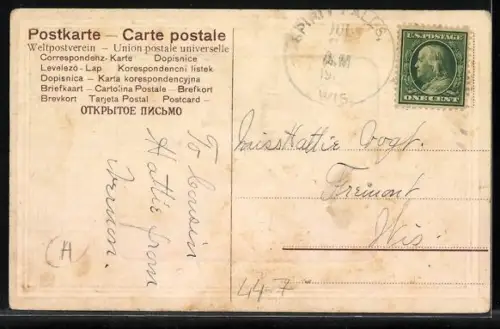 Postkarte — Carte postale
Weltpostverein — Union postale universelle
Correspondenz-Karte Dopisnice —
Levelező-Lap Korespondencni listek
Dopisnica — Karta korespondencyjna
Briefkaart — Cartolina Postale — Brefkort
Brevkort Tarjeta Postal Postcard —
ОТКРЫТОЕ ПИСЬМО
To Cousin
Hattie from
Vernon.
(H)
FALLS,
AM
19
WIS.
U.S. POSTAGE
ONE CENT
Miss Hattie Vogt.
Fremont
Wis.
44-7